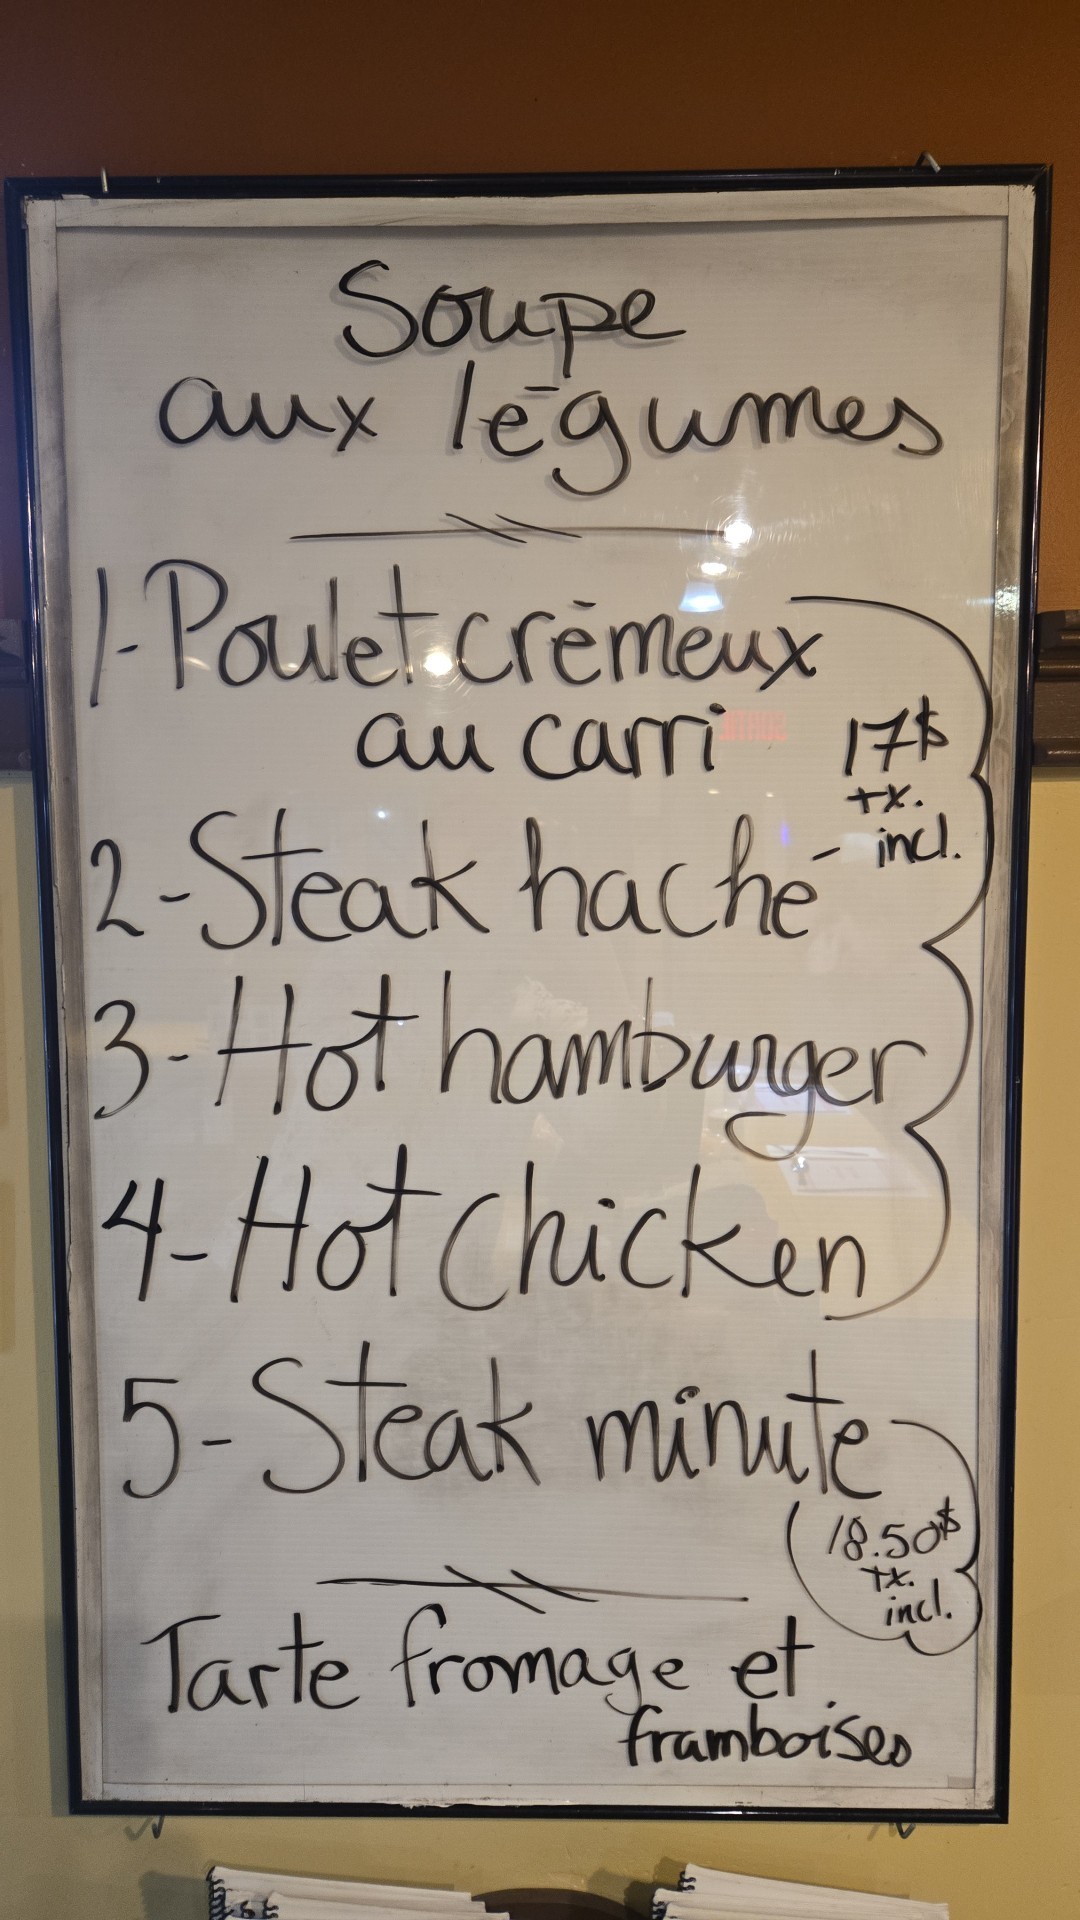 Soupe
aux légumes
1-Poulet crèmeux
au carri
17$
tx.
incl.
2-Steak haché
3-Hot hamburger
4-Hot chicken
5-Steak minute
18.50$
tx.
incl.
Tarte fromage et
framboises